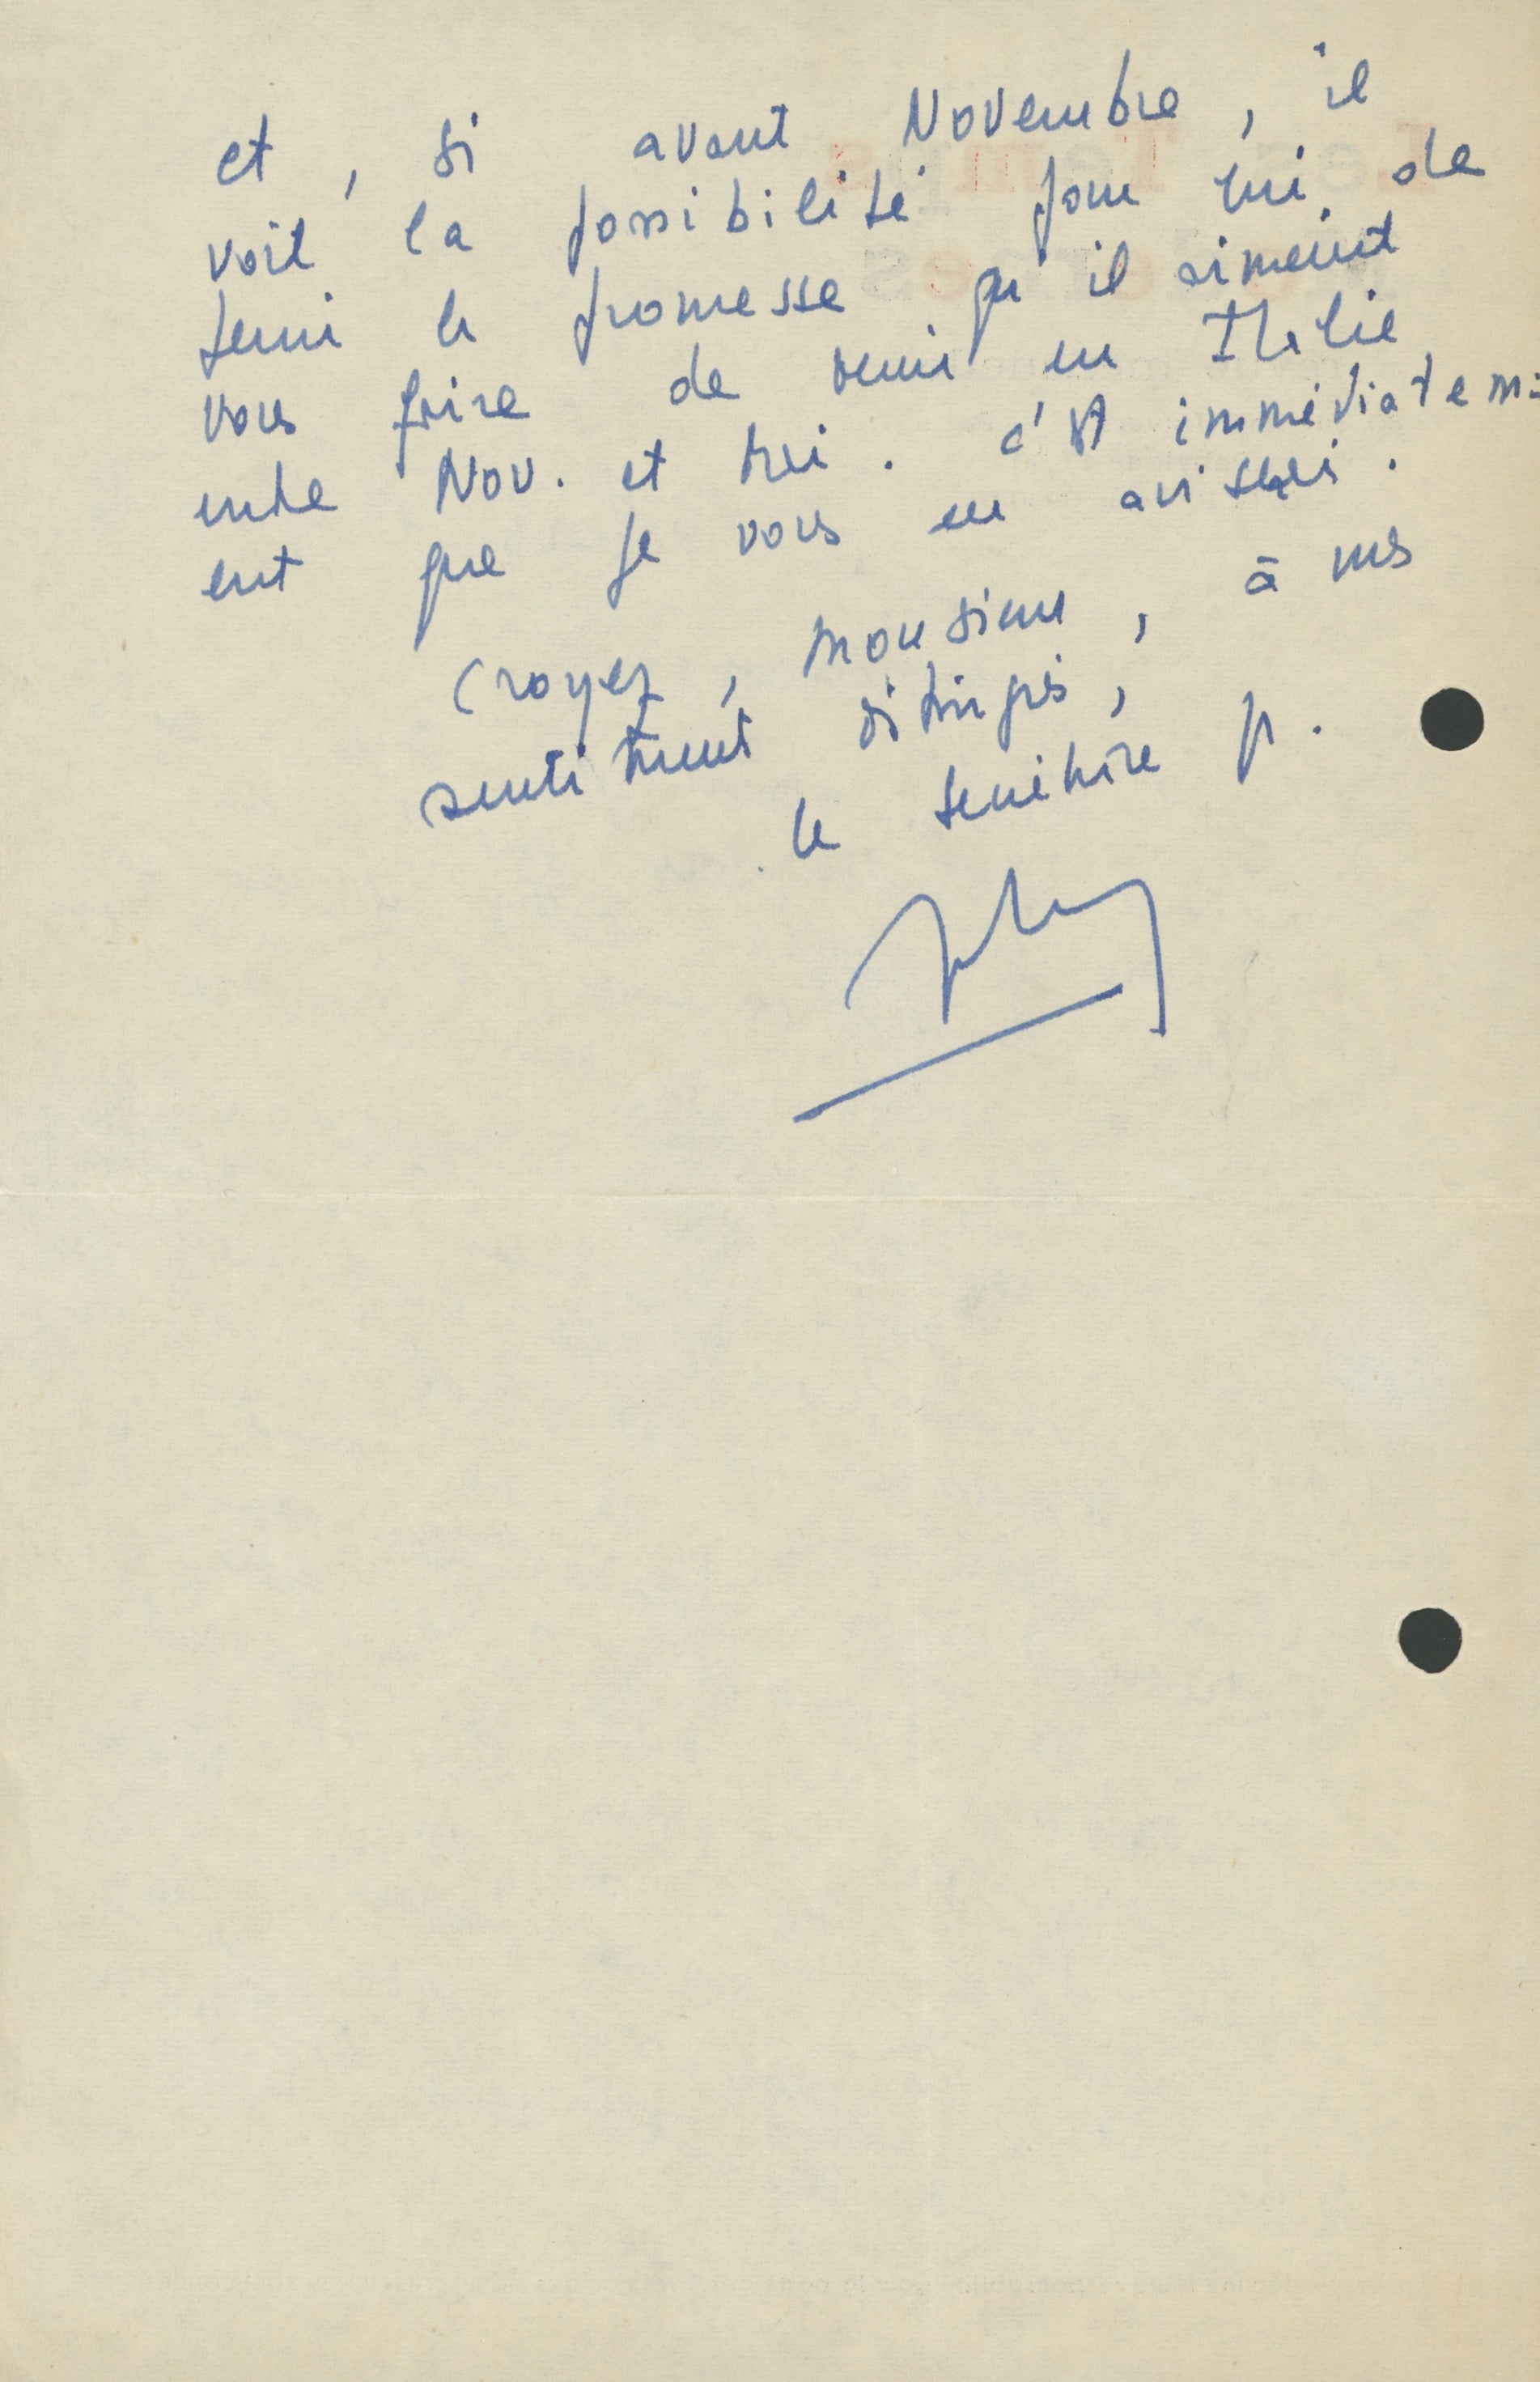 et, si avant Novembre, il
voit la possibilité pour lui de
tenir la promesse qu'il aimerait
vous faire de venir en Italie
entre Nov. et Mai. c'est immédiatem=
ent que je vous en aviserai.
Croyez, Monsieur, à mes
sentiments distingués,
le secrétaire p.